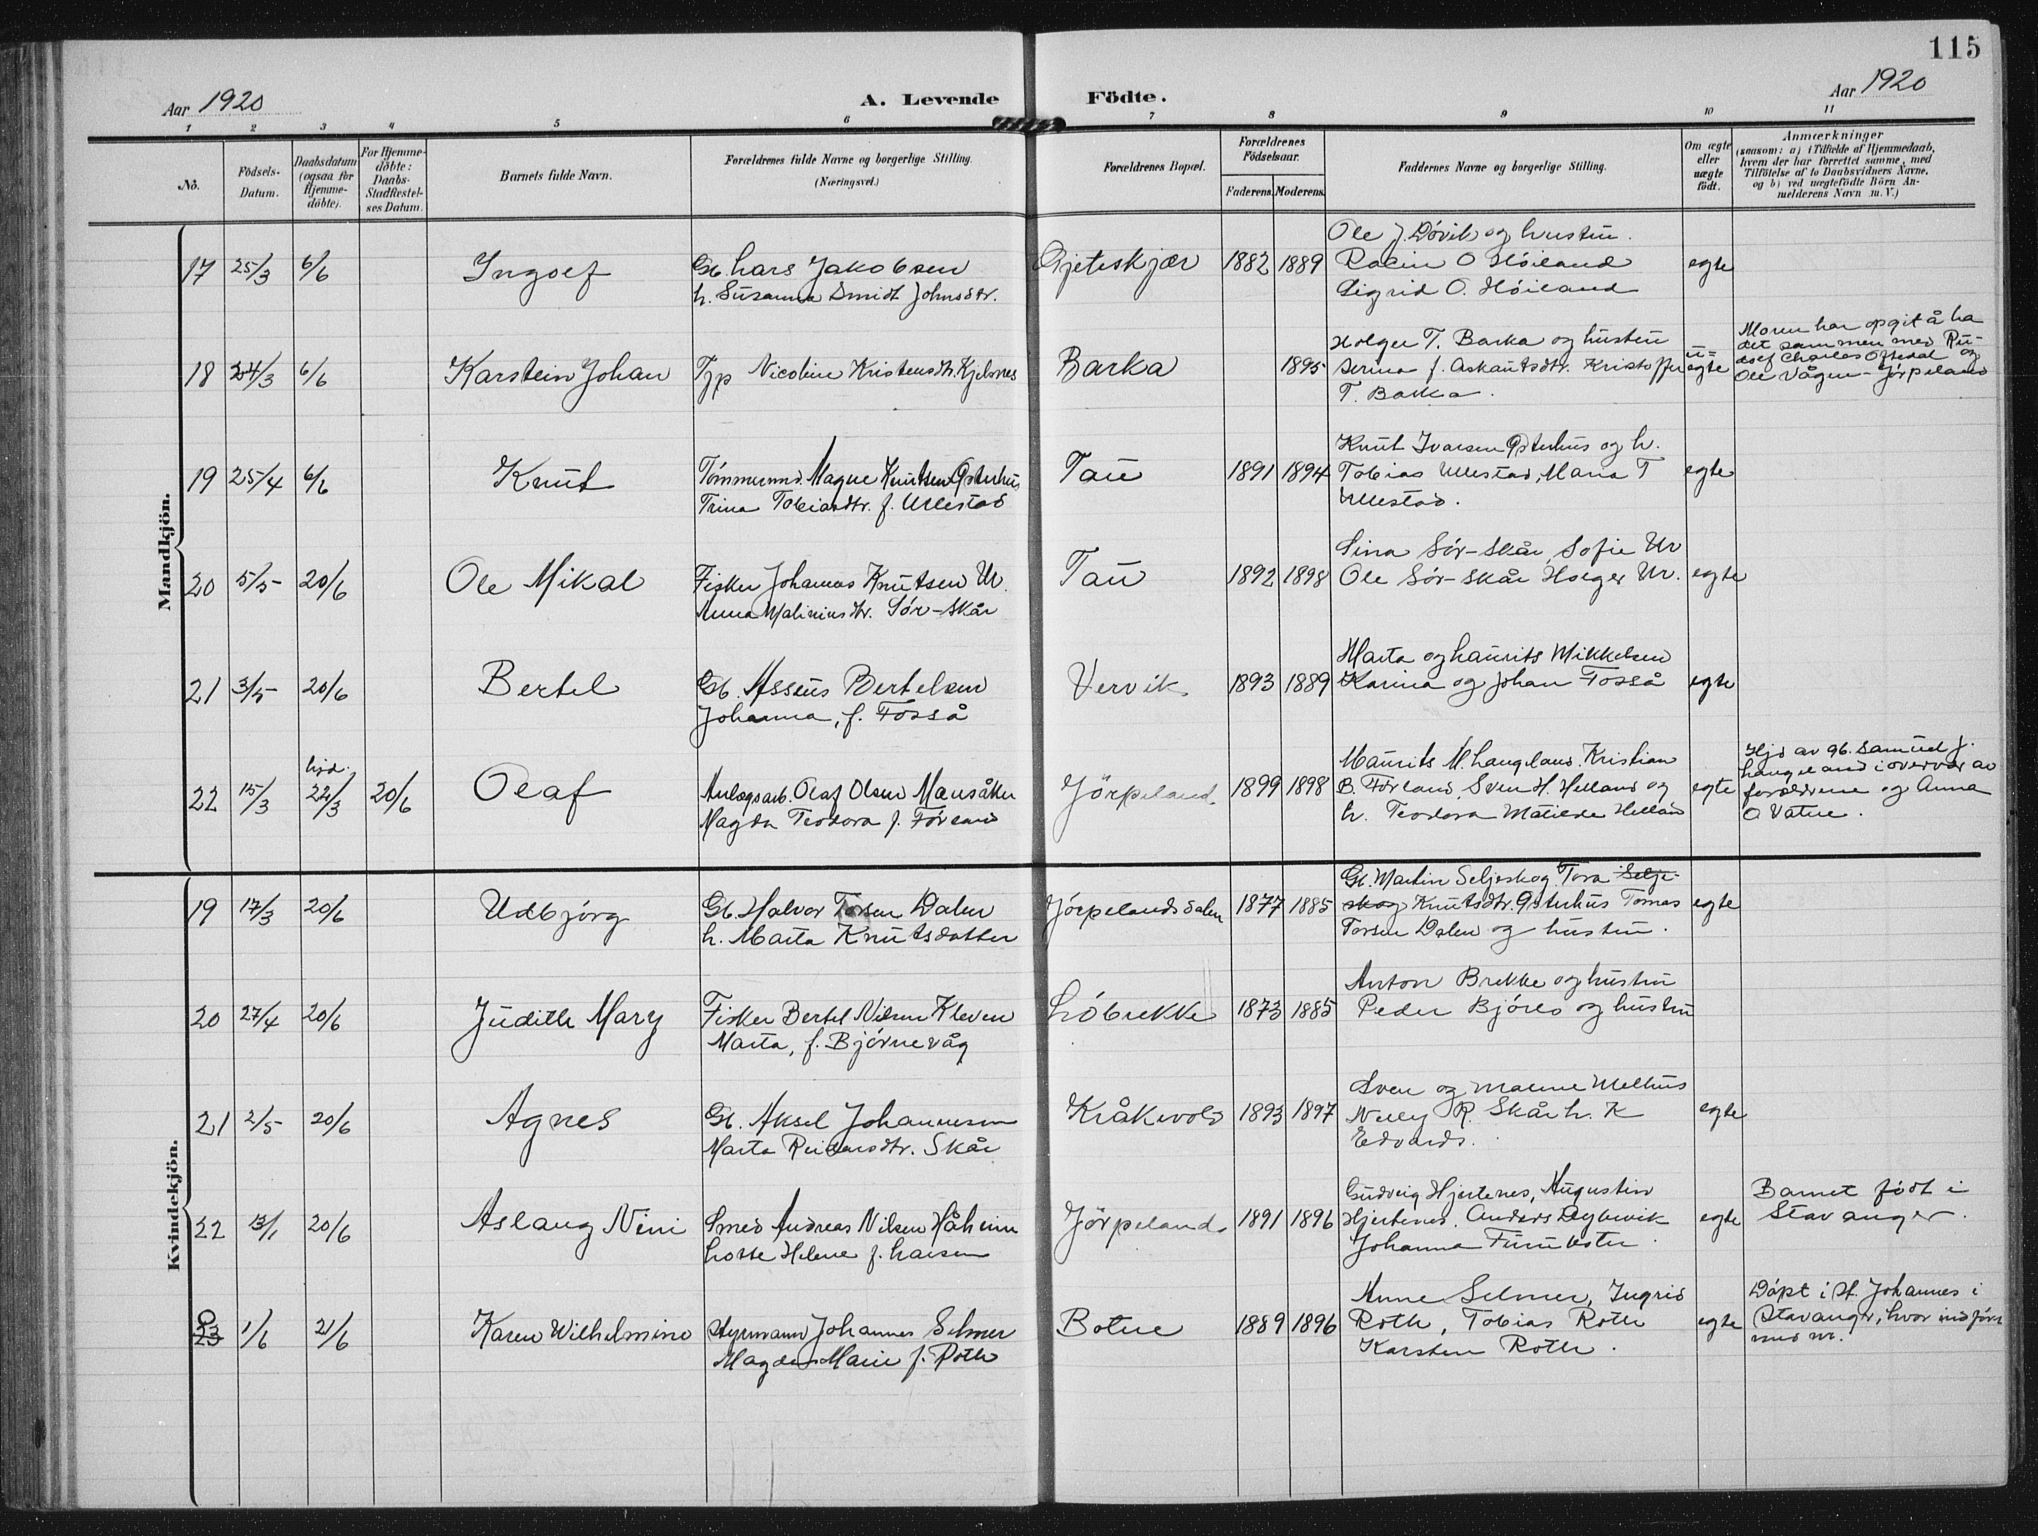 115
Aar 1920 A. Levende Födte. Aar 1920
1 2 3 4 5 6 7 8 9 10 11
No. Födsels-Datum. Daabsdatum (ogsaa for Hjemme-döbte). For Hjemme-döbte: Daabs-Stadfæstel-ses Datum. Barnets fulde Navn. Forældrenes fulde Navne og borgerlige Stilling. (Næringsvei.) Forældrenes Bopæl. Forældrenes Födselsaar. Faderens. Moderens. Faddernes Navne og borgerlige Stilling. Om ægte eller uægte födt. Anmærkninger
(saasom: a) i Tilfælde af Hjemmedaab, hvem der har forrettet samme, med Tilföielse af to Daabsvidners Navne, og b) ved uægtefödte Börn An-melderens Navn m. V.)
Mandkjön.
Ole J. Døvik og hustru.
17 25/3 6/6 Ingolf Gb. Lars Jakobsen Gjeteskjær 1882 1889 O Høiland egte
h. Susanna Smidt Johnsdtr. Sigrid O. Høiland
Holger T. Barka og hustru Moren har opgit å ha
det sammen med Ru-
18 24/3 6/6 Karstein Johan Nicoline Kristensdtr. Kjelsnes Barka 1895 Serina f. Askautsdtr. Kristoffer u=egte dolf Charles Oftedal og
T. Barka. Ole Vågen - Jørpeland
Knut Ivarsen Østerhus og h.
19 25/4 6/6 Knut Tømmermd. Magne Knutsen Østerhus Tau 1891 1894 Tobias Ullestad, Maria T egte
Trina Tobiasdtr. f. Ullestad Ullestad.
Sina Sør-Skår, Sofie Ur
20 5/5 20/6 Ole Mikal Fisker Johannes Knutsen Ur. Tau 1892 1898 Ole Sør-Skår Holger Ur. egte
Anna Maliniusdtr. Sør-Skår
Marta og Laurits Mikkelsen
21 3/5 20/6 Bertel Gb. Assens Bertelsen Vervik 1893 1889 Karina og Johan Fosså egte
Johanna, f. Fosså
hjd. Maurits M. Langeland. Kristian Hjd av gb. Samuel J.
22 15/3 22/3 20/6 Olaf Anlægsarb. Olaf Olsen Månsåker Jørpeland. 1899 1898 B. Førland, Sven H. Helland og egte Langeland i overvær av foreldrene og Anna
Magda Teodora f. Førland h. Teodora Matilde Helland O Vatne.
Kvindekjön.
Gb. Martin Seljeskog. Tora Selje-
19 17/3 20/6 Udbjørg Gb. Halvor Torsen Dalen Jørpelandsdalen 1877 1885 skog Knutsdtr. Østerhus Tomas egte
h. Marta Knutsdatter Torsen Dalen og hustru.
Anton Brekke og hustru
20 27/4 20/6 Judith Mary Fisker Bertel Nilsen Kleven Løbrekke 1873 1885 Peder Bjøreo og hustru
Marta, f. Bjørnevåg
Sven og Malene Melhus
21 2/5 20/6 Agnes Gb. Aksel Johannesen Kråkevold 1893 1897 Nelly R. Skår h. K egte
Marta Reidarsdtr. Skår Edvards.
Gudveig Hjertenes, Augustin Barnet født i
22 13/1 20/6 Aslaug Nini Smed Andreas Nilsen Håheim Jørpeland. 1891 1896 Hjertenes. Anders egte Stavanger.
Lotte Helene f. Larsen Johanna
Anne Selmer, Ingrid Døpt i St. Johannes i
23 1/6 21/6 Karen Wilhelmine Styrmann Johannes Selmer Botne 1889 1896 Roth, Tobias Roth egte Stavanger, hvor indført
Magda Marie f. Roth Karsten Roth. med nr.